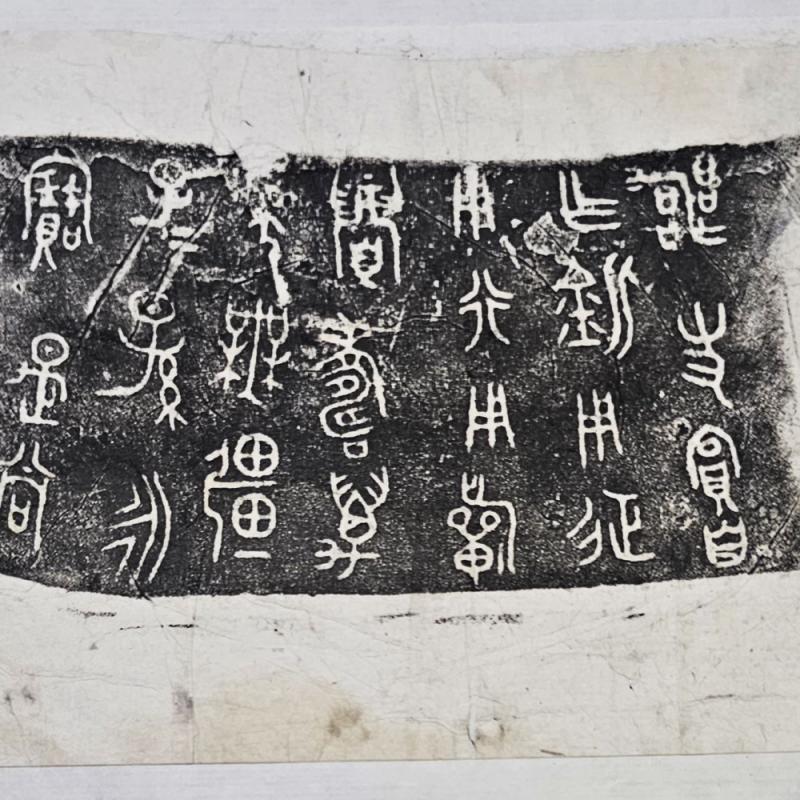 友自
乍用征
用行用
眉壽萬
年無疆
子孫永
寶是尚